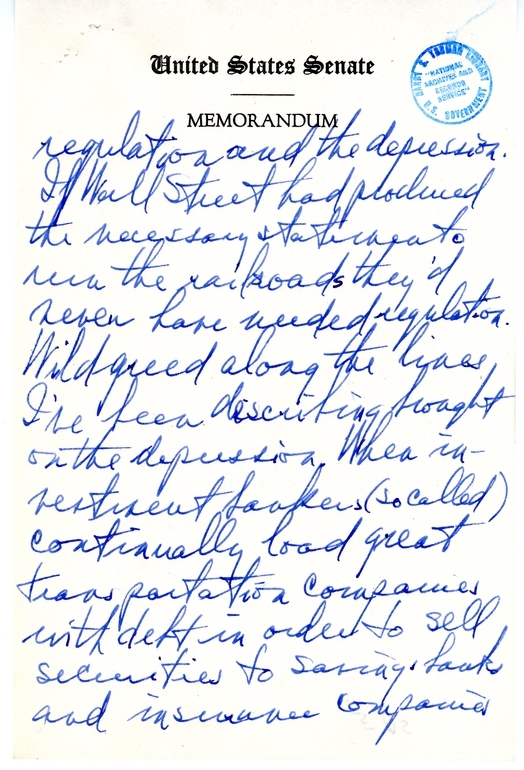 United States Senate
MEMORANDUM
HARRY S. TRUMAN LIBRARY
"NATIONAL
ARCHIVES AND
RECORDS
SERVICE"
U.S. GOVERNMENT
regulation and the depression.
If Wall Street had produced
the necessary statesmen to
run the railroads they'd
never have needed regulation.
Wild greed along the lines
I've been describing brought
on the depression. When in-
vestment bankers (so called)
continually load great
transportation companies
with debt in order to sell
securities to savings banks
and insurance companies